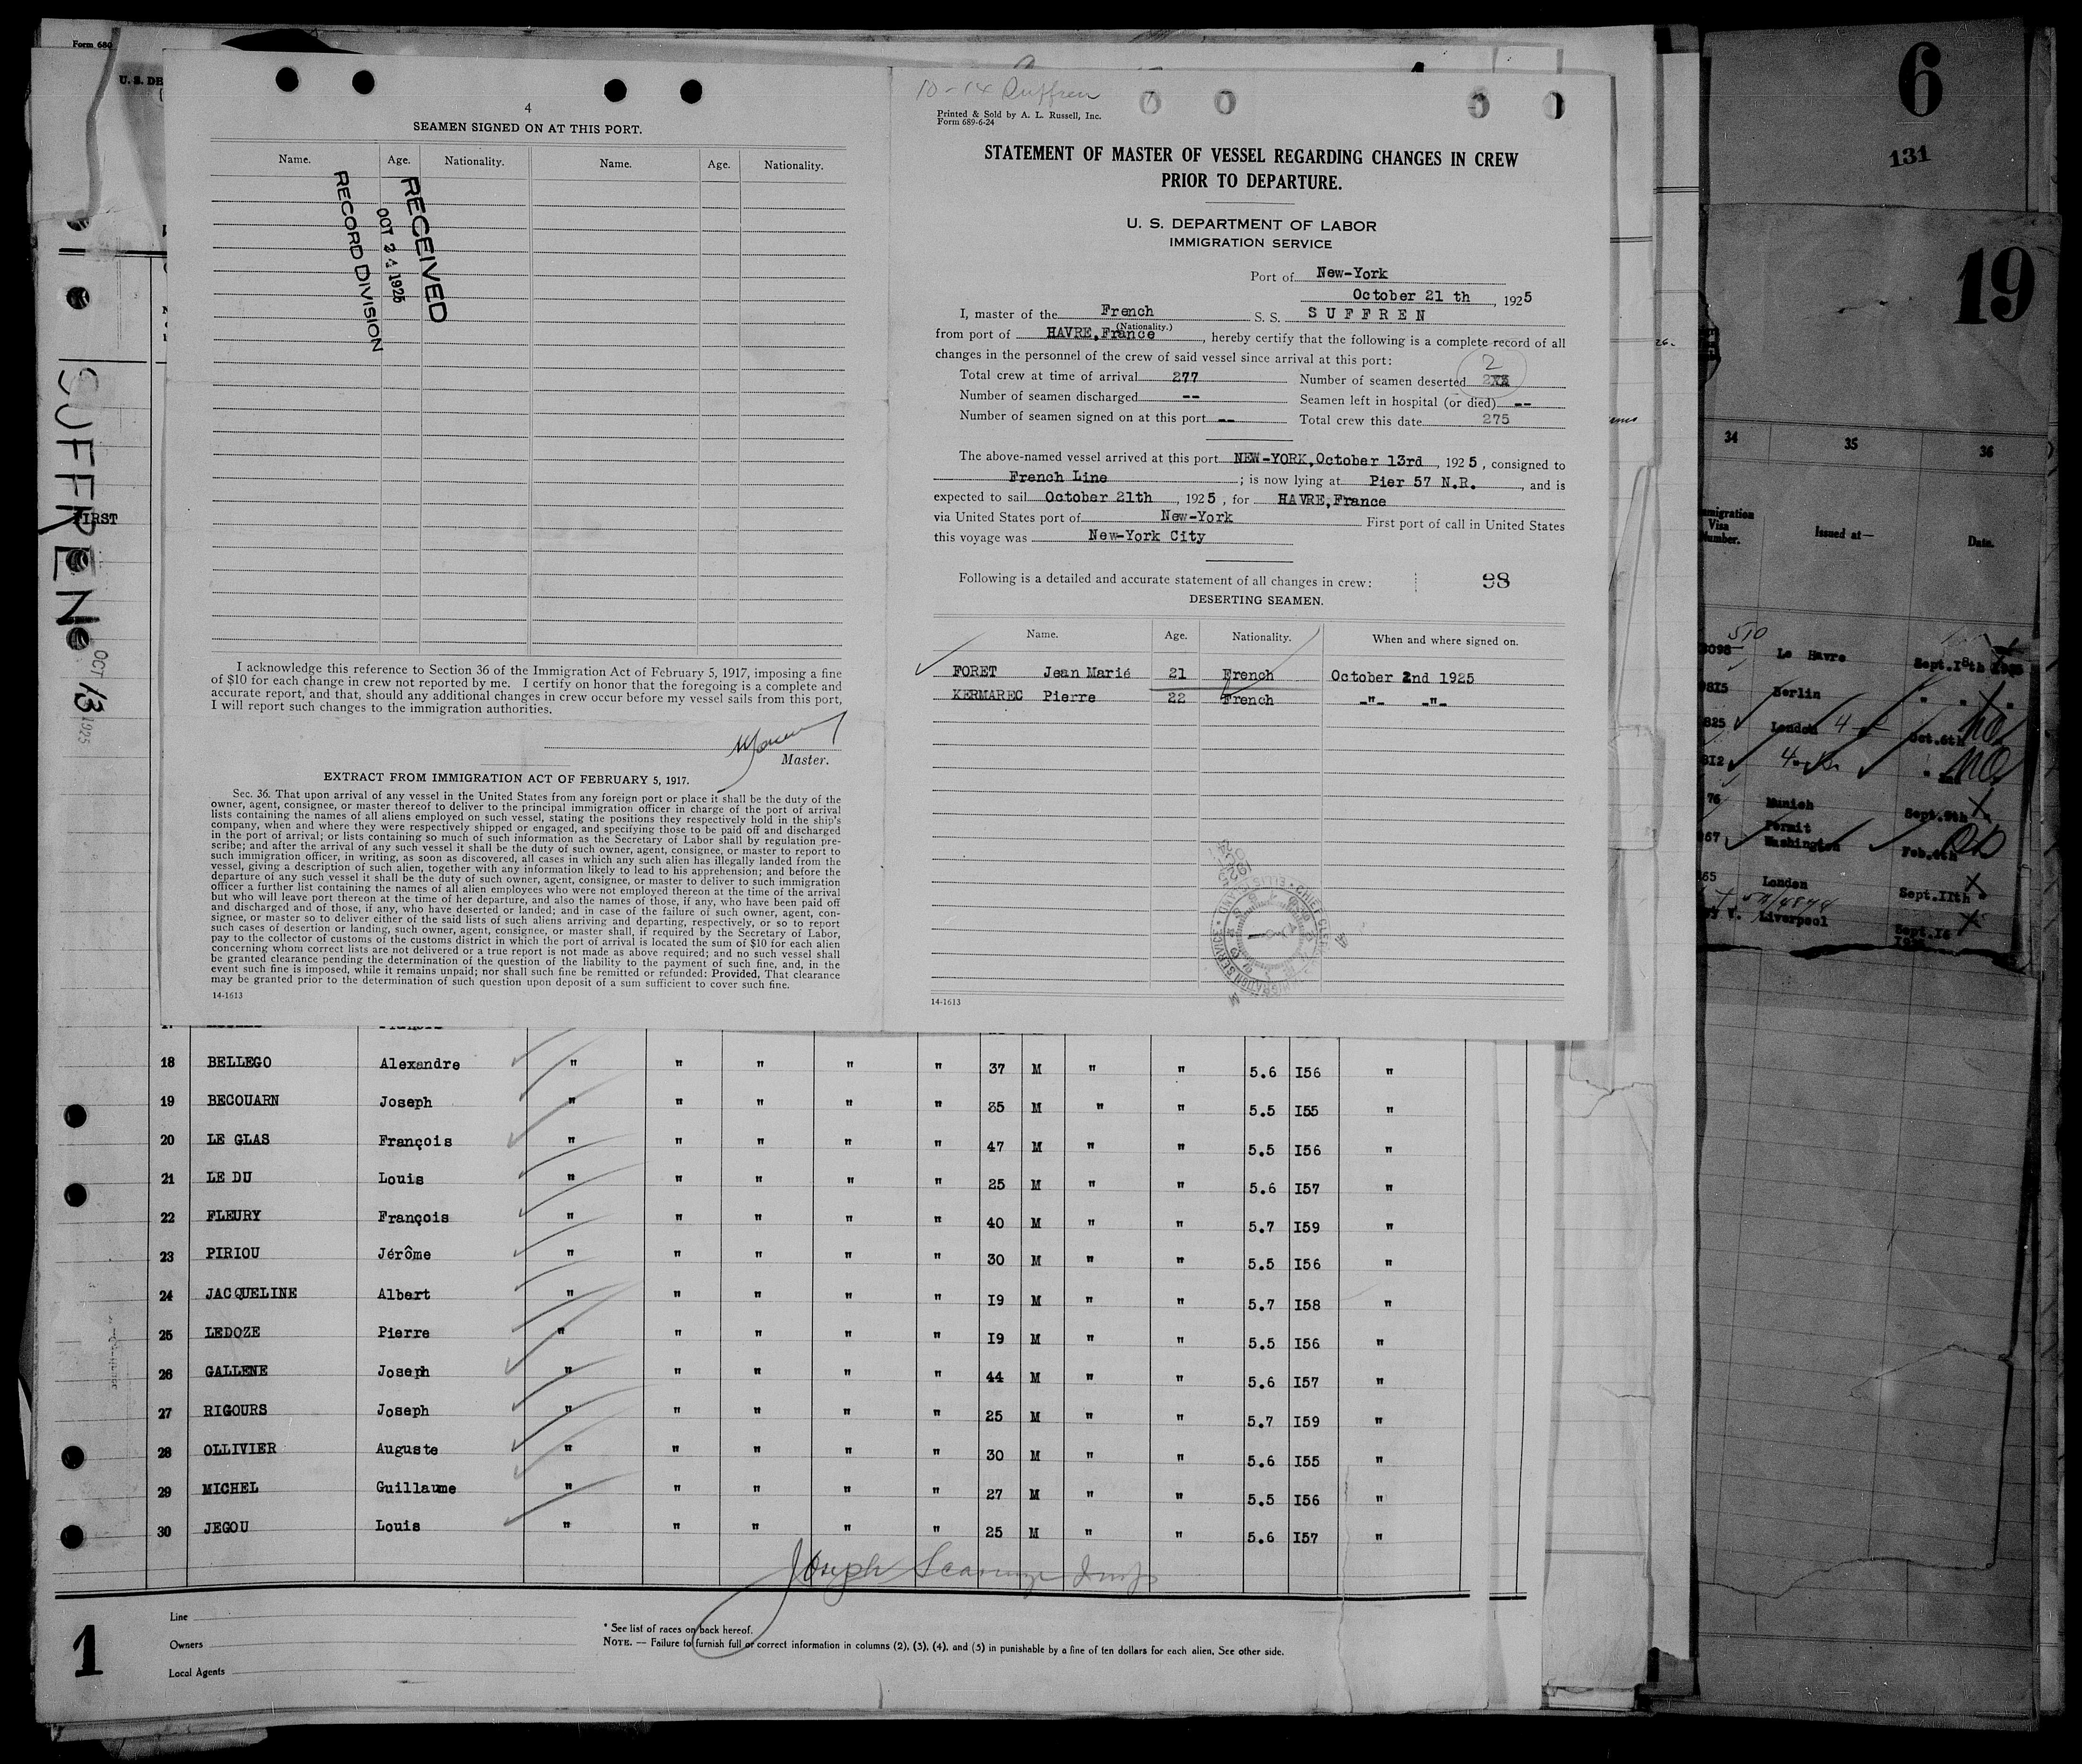 Form 680
U. S. DE
SUFFREN
FIRST
OCT 13 1925
4
SEAMEN SIGNED ON AT THIS PORT.
Name. Age. Nationality. Name. Age. Nationality.
RECEIVED
OCT 24 1925
RECORD DIVISION
I acknowledge this reference to Section 36 of the Immigration Act of February 5, 1917, imposing a fine
of $10 for each change in crew not reported by me. I certify on honor that the foregoing is a complete and
accurate report, and that, should any additional changes in crew occur before my vessel sails from this port,
I will report such changes to the immigration authorities.
Master.
EXTRACT FROM IMMIGRATION ACT OF FEBRUARY 5, 1917.
Sec. 36. That upon arrival of any vessel in the United States from any foreign port or place it shall be the duty of the
owner, agent, consignee, or master thereof to deliver to the principal immigration officer in charge of the port of arrival
lists containing the names of all aliens employed on such vessel, stating the positions they respectively hold in the ship's
company, when and where they were respectively shipped or engaged, and specifying those to be paid off and discharged
in the port of arrival; or lists containing so much of such information as the Secretary of Labor shall by regulation pre-
scribe; and after the arrival of any such vessel it shall be the duty of such owner, agent, consignee, or master to report to
such immigration officer, in writing, as soon as discovered, all cases in which any such alien has illegally landed from the
vessel, giving a description of such alien, together with any information likely to lead to his apprehension; and before the
departure of any such vessel it shall be the duty of such owner, agent, consignee, or master to deliver to such immigration
officer a further list containing the names of all alien employees who were not employed thereon at the time of the arrival
but who will leave port thereon at the time of her departure, and also the names of those, if any, who have been paid off
and discharged and of those, if any, who have deserted or landed; and in case of the failure of such owner, agent, con-
signee, or master so to deliver either of the said lists of such aliens arriving and departing, respectively, or so to report
such cases of desertion or landing, such owner, agent, consignee, or master shall, if required by the Secretary of Labor,
pay to the collector of customs of the customs district in which the port of arrival is located the sum of $10 for each alien
concerning whom correct lists are not delivered or a true report is not made as above required; and no such vessel shall
be granted clearance pending the determination of the question of the liability to the payment of such fine, and, in the
event such fine is imposed, while it remains unpaid; nor shall such fine be remitted or refunded: Provided, That clearance
may be granted prior to the determination of such question upon deposit of a sum sufficient to cover such fine.
14-1613
10-14 Suffren
Printed & Sold by A. L. Russell, Inc.
Form 689-6-24
STATEMENT OF MASTER OF VESSEL REGARDING CHANGES IN CREW
PRIOR TO DEPARTURE.
U. S. DEPARTMENT OF LABOR
IMMIGRATION SERVICE
Port of New-York
October 21 th, 1925
I, master of the French S. S. SUFFREN
(Nationality.)
from port of HAVRE, France, hereby certify that the following is a complete record of all
changes in the personnel of the crew of said vessel since arrival at this port:
2
Total crew at time of arrival 277 Number of seamen deserted 2XX
Number of seamen discharged -- Seamen left in hospital (or died) --
Number of seamen signed on at this port -- Total crew this date 275
The above-named vessel arrived at this port NEW-YORK, October 13rd, 1925, consigned to
French Line; is now lying at Pier 57 N.R., and is
expected to sail October 21th, 1925, for HAVRE, France
via United States port of New-York First port of call in United States
this voyage was New-York City
Following is a detailed and accurate statement of all changes in crew: 98
DESERTING SEAMEN.
Name. Age. Nationality. When and where signed on.
FORET Jean Marié 21 French October 2nd 1925
KERMAREC Pierre 22 French -"- -"-
14-1613
18 BELLEGO Alexandre " " " " " 37 M " " 5.6 I56 "
19 BECOUARN Joseph " " " " " 35 M " " 5.5 I55 "
20 LE GLAS François " " " " " 47 M " " 5.5 I56 "
21 LE DU Louis " " " " " 25 M " " 5.6 I57 "
22 FLEURY François " " " " " 40 M " " 5.7 I59 "
23 PIRIOU Jérôme " " " " " 30 M " " 5.5 I56 "
24 JACQUELINE Albert " " " " " I9 M " " 5.7 I58 "
25 LEDOZE Pierre " " " " " I9 M " " 5.5 I56 "
26 GALLENE Joseph " " " " " 44 M " " 5.6 I57 "
27 RIGOURS Joseph " " " " " 25 M " " 5.7 I59 "
28 OLLIVIER Auguste " " " " " 30 M " " 5.6 I55 "
29 MICHEL Guillaume " " " " " 27 M " " 5.5 I56 "
30 JEGOU Louis " " " " " 25 M " " 5.6 I57 "
Joseph
1
Line
Owners
Local Agents
* See list of races on back hereof.
NOTE. — Failure to furnish full or correct information in columns (2), (3), (4), and (5) in punishable by a fine of ten dollars for each alien, See other side.
6
131
19
34 35 36
migration
Visa
Number. Issued at— Date.
510
3098 Le Havre Sept.18th
Berlin " "
825 London 4 Oct.6th no
812 no
76 Munich Sept.9th
Permit
67 Washington Feb.4th
65 London Sept.11th
Liverpool Sept.16